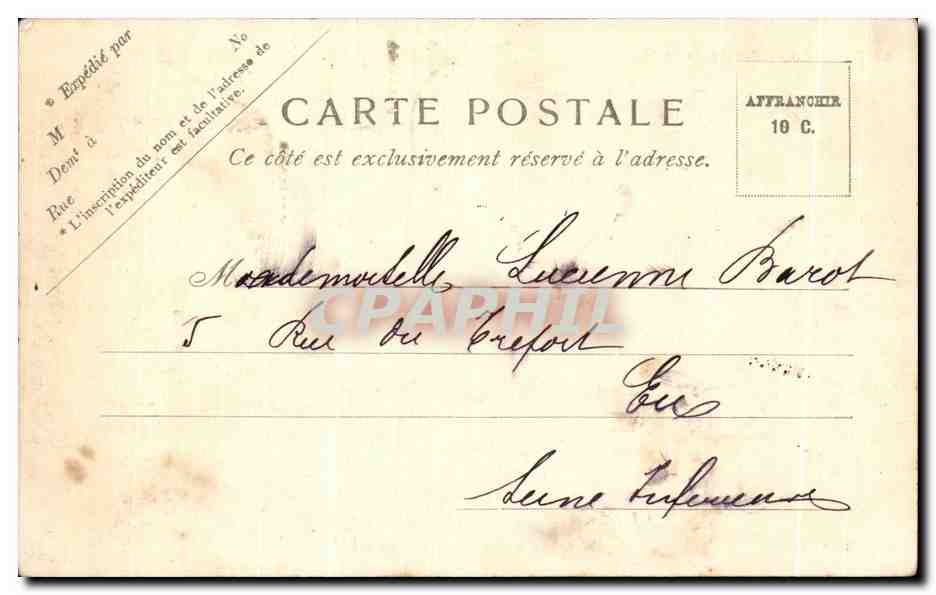 * Expédié par
M
Demt à
Rue No
* L'inscription du nom et de l'adresse de
l'expéditeur est facultative.
CARTE POSTALE
Ce côté est exclusivement réservé à l'adresse.
AFFRANCHIR
10 C.
Mademoiselle Lucienne Barot
5 Rue du Tréfort
Eu
Seine Inferieure
CPAPHIL